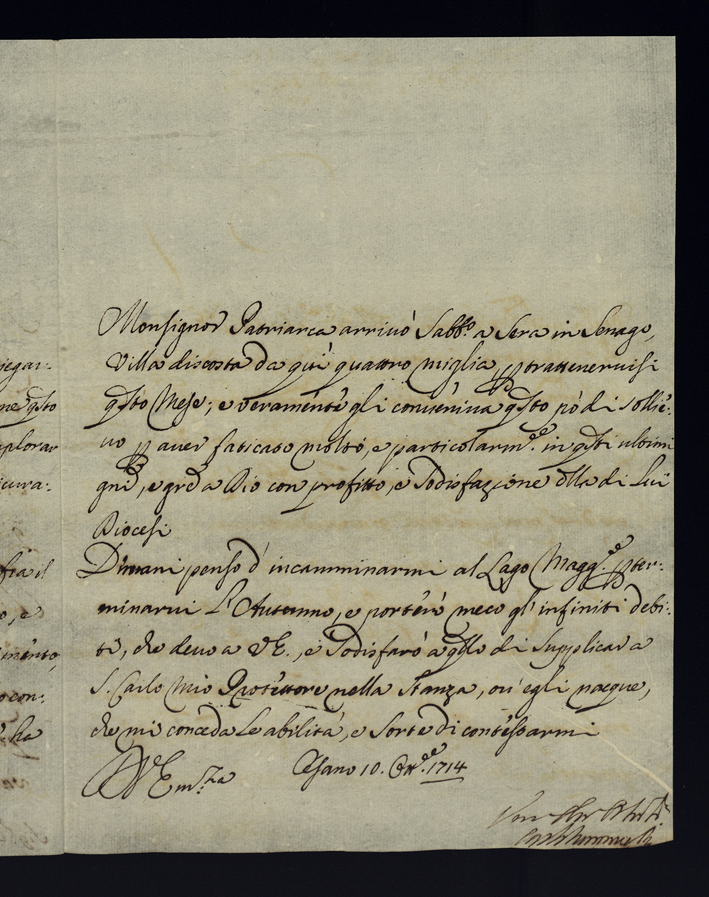 Monsignor Patriarca arrivò Sabb.o a Sera in Senago,
Villa discosta da qui quattro miglia, p trattenervisi
qsto Mese; e veramente gli conveniva qsto pò di sollie:
vo p aver faticato molto, e particolarm.e in qsti ultimi
gni, e grã a Dio con profitto, e Sodisfazione dlla di Lui
Diocesi
Dimani penso d'incamminarmi al Lago Magg.e p ter:
minarvi l'Autunno, e porterò meco gl'infiniti debi:
ti, che devo a VE., e Sodisfarò a qllo di Supplicar a
S. Carlo mio Protettore nella Stanza, ov'egli nacque,
che mi conceda le abilità, e Sorte di contessarmi
DVEm.za Cesano 10. Ott.e 1714